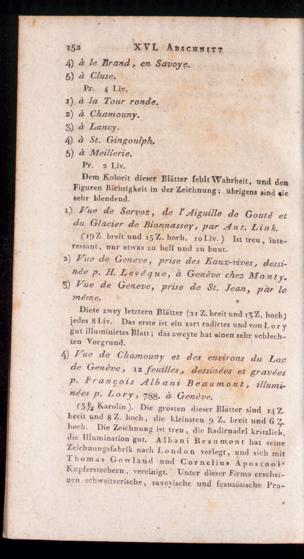 152 XVI. Abschnitt
4) à le Brand, en Savoye.
5) à Cluse.
Pr. 4 Liv.
1) à la Tour ronde.
2) à Chamouny.
3) à Lancy.
4) à St. Gingoulph.
5) à Meillerie.
Pr. 2 Liv.
Dem Kolorit dieser Blätter fehlt Wahrheit, und den
Figuren Richtigkeit in der Zeichnung; übrigens sind sie
sehr blendend.
1) Vue de Servoz, de l'Aiguille de Gouté et
du Glacier de Bionnassey, par Ant. Link.
(19 Z. breit und 15 Z. hoch. 10 Liv.) Ist treu, inte-
ressant, nur etwas zu hell und zu bunt.
2) Vue de Geneve, prise des Eaux-vives, dessi-
née p. H. Levêque, à Genève chez Monty.
3) Vue de Geneve, prise de St. Jean, par le
même.
Diese zwey letztern Blätter (21 Z. breit und 13 Z. hoch)
jedes 8 Liv. Das erste ist ein zart radirtes und von Lory
gut illuminirtes Blatt; das zweyte hat einen sehr schlech-
ten Vorgrund.
4) Vue de Chamouny et des environs du Lac
de Genève, 12 feuilles, dessinées et gravées
p. François Albani Beaumont, illumi-
nées p. Lory, 788. à Genève.
(3½ Karolin). Die grösten dieser Blätter sind 14 Z.
breit und 8 Z. hoch, die kleinsten 9 Z. breit und 6 Z.
hoch. Die Zeichnung ist treu, die Radirnadel kritzlich,
die Illumination gut. Albani Beaumont hat seine
Zeichnungsfabrik nach London verlegt, und sich mit
Thomas Gowland und Cornelius Apostool
Kupferstechern, vereinigt. Unter dieser Firma erschei-
nen schweizerische, savoyische und französische Pro-